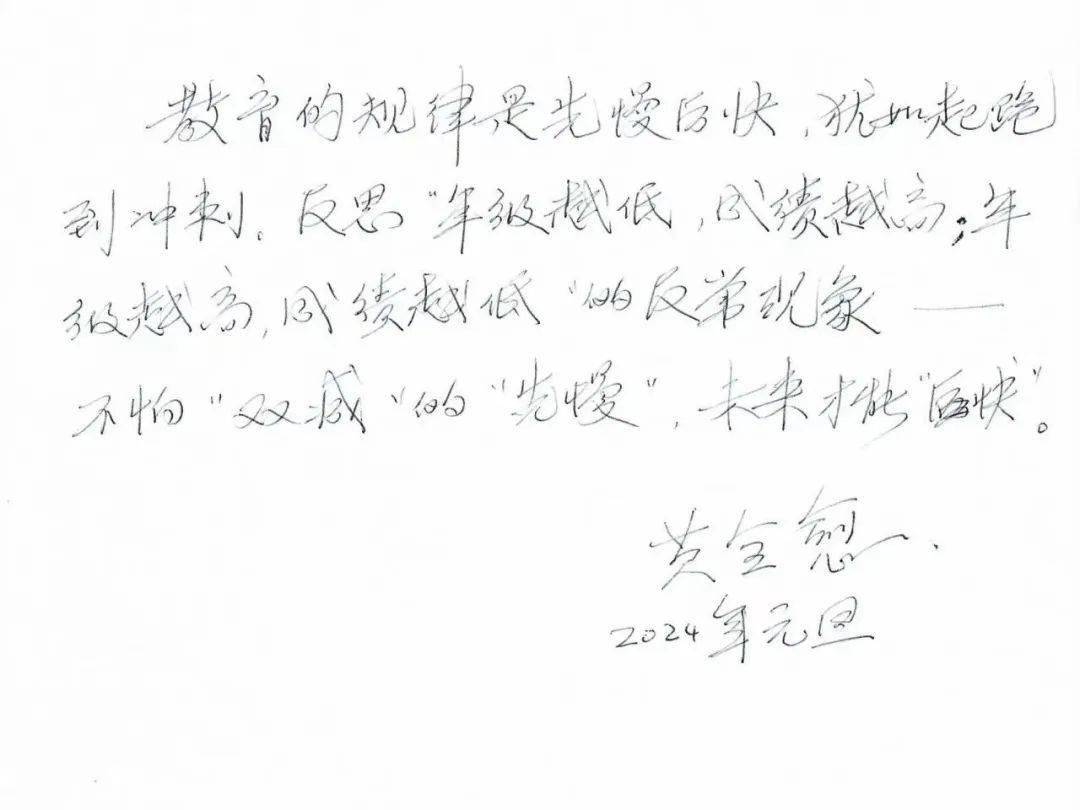 教育的规律是先慢后快,犹如起跑
到冲刺。反思"年级越低,成绩越高;年
级越高,成绩越低"的反常现象——
不怕"双减"的"先慢",未来才能"后快"。
黄全愈
2024年元旦